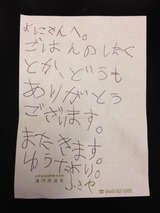 よにさんへ。
ごはんのしたく
とか、どうも
ありがとう
ございます。
またきます。
ゆうたより。